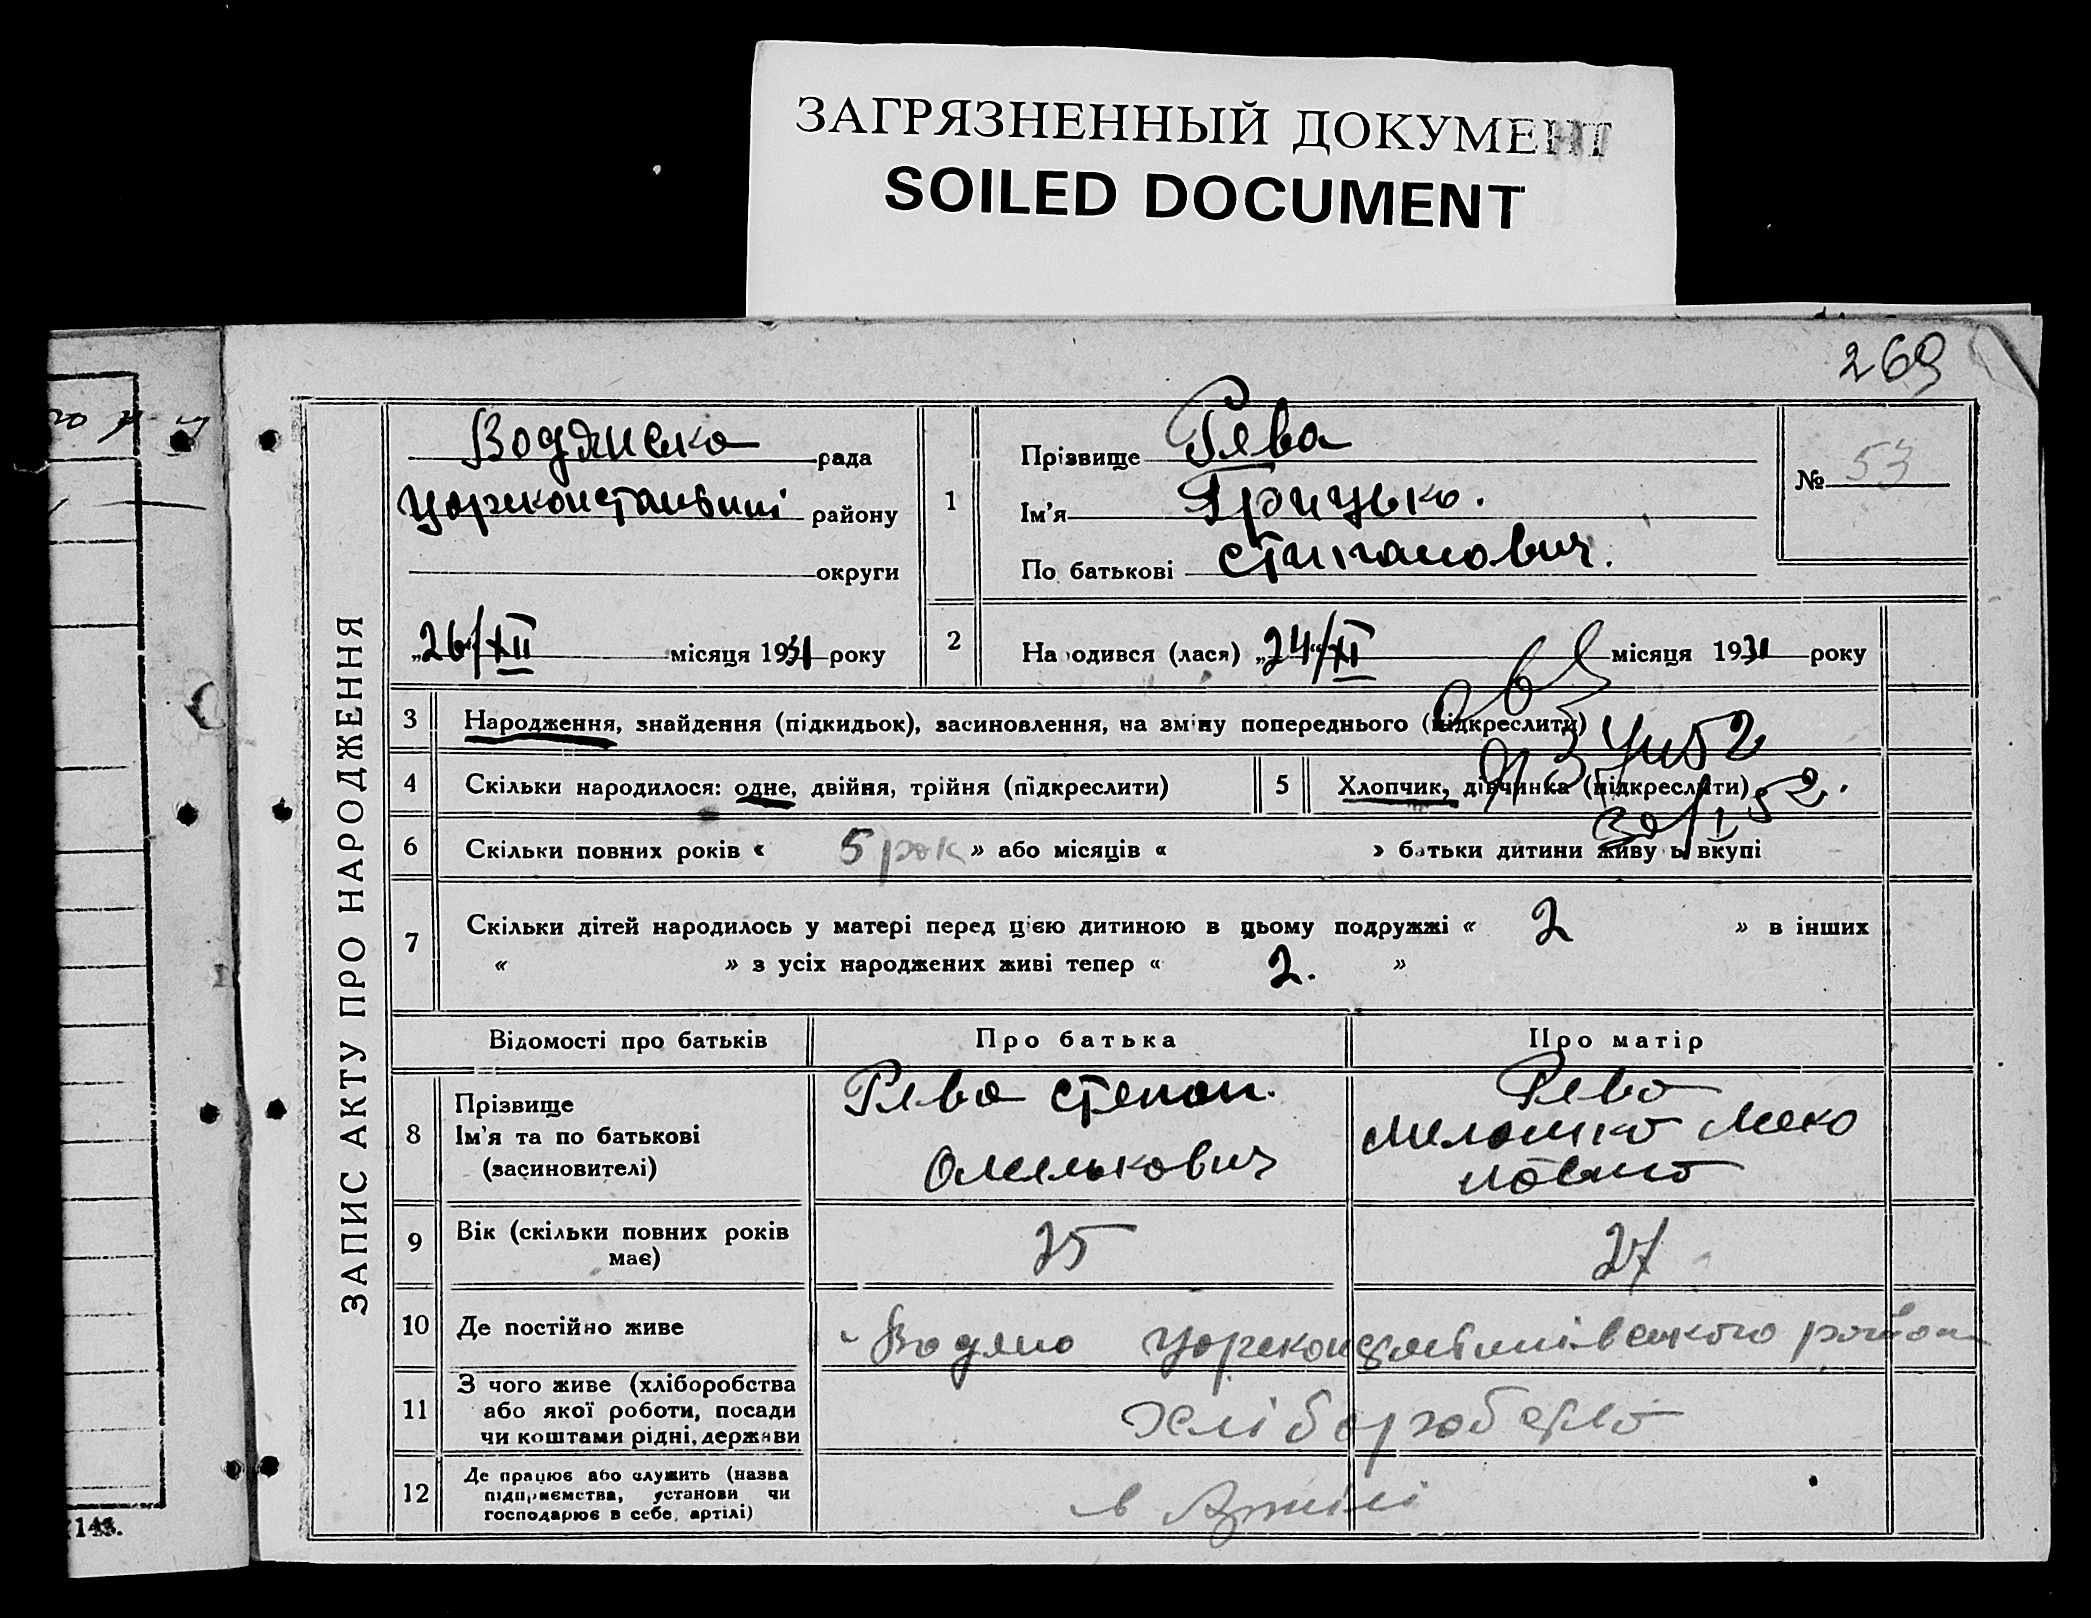 ЗАГРЯЗНЕННЫЙ ДОКУМЕНТ
SOILED DOCUMENT
269
ЗАПИС АКТУ ПРО НАРОДЖЕННЯ
Водянска рада
Царекостантині району
округи
„26/XII місяця 1931 року
1
Прізвище Рева
Ім'я Грицько.
По батькові Стипанович.
№ 53
2
Народився (лася) „24/XII місяця 1931 року
3 Народження, знайдення (підкидьок), засиновлення, на зміну попереднього (підкреслити)
4 Скільки народилося: одне, двійня, трійня (підкреслити)
5 Хлопчик, дівчинка (підкреслити)
30/I 52.
6 Скільки повних років « 5 рок » або місяців « » батьки дитини живуть вкупі
7 Скільки дітей народилось у матері перед цією дитиною в цьому подружжі « 2 » в інших
« » з усіх народжених живі тепер « 2. »
Відомості про батьків Про батька Про матір
8 Прізвище
Ім'я та по батькові
(засиновителі)
Рева Степан.
Омелькович
Рева
Мелашка
9 Вік (скільки повних років
має)
25
27
10 Де постійно живе
Водяно Царекостантинівського район
11 З чого живе (хліборобства
або якої роботи, посади
чи коштами рідні, держави
Хліборобство
12 Де працює або служить (назва
підприємства, установи чи
господарює в себе, артілі)
в Артілі
143.